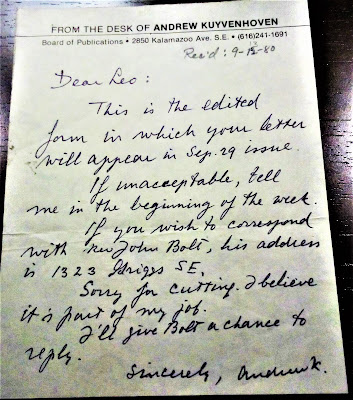 FROM THE DESK OF ANDREW KUYVENHOVEN
Board of Publications • 2850 Kalamazoo Ave. S.E. • (616)241-1691
Rec'd: 9-12-80
Dear Leo:
This is the edited
form in which your letter
will appear in Sep. 29 issue.
If unacceptable, tell
me in the beginning of the week.
If you wish to correspond
with Rev John Bolt, his address
is 1323 SE.
Sorry for cutting. I believe
it is part of my job.
I'll give Bolt a chance to
reply.
Sincerely, Andrew K.